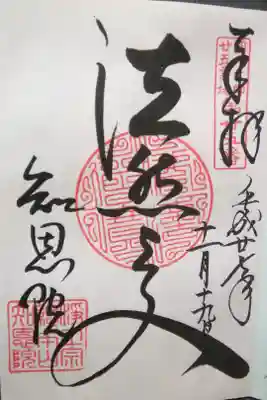 奉拝
平成廿七年
十一月十九日
法然上人
知恩院
浄土宗
総本山
知恩院